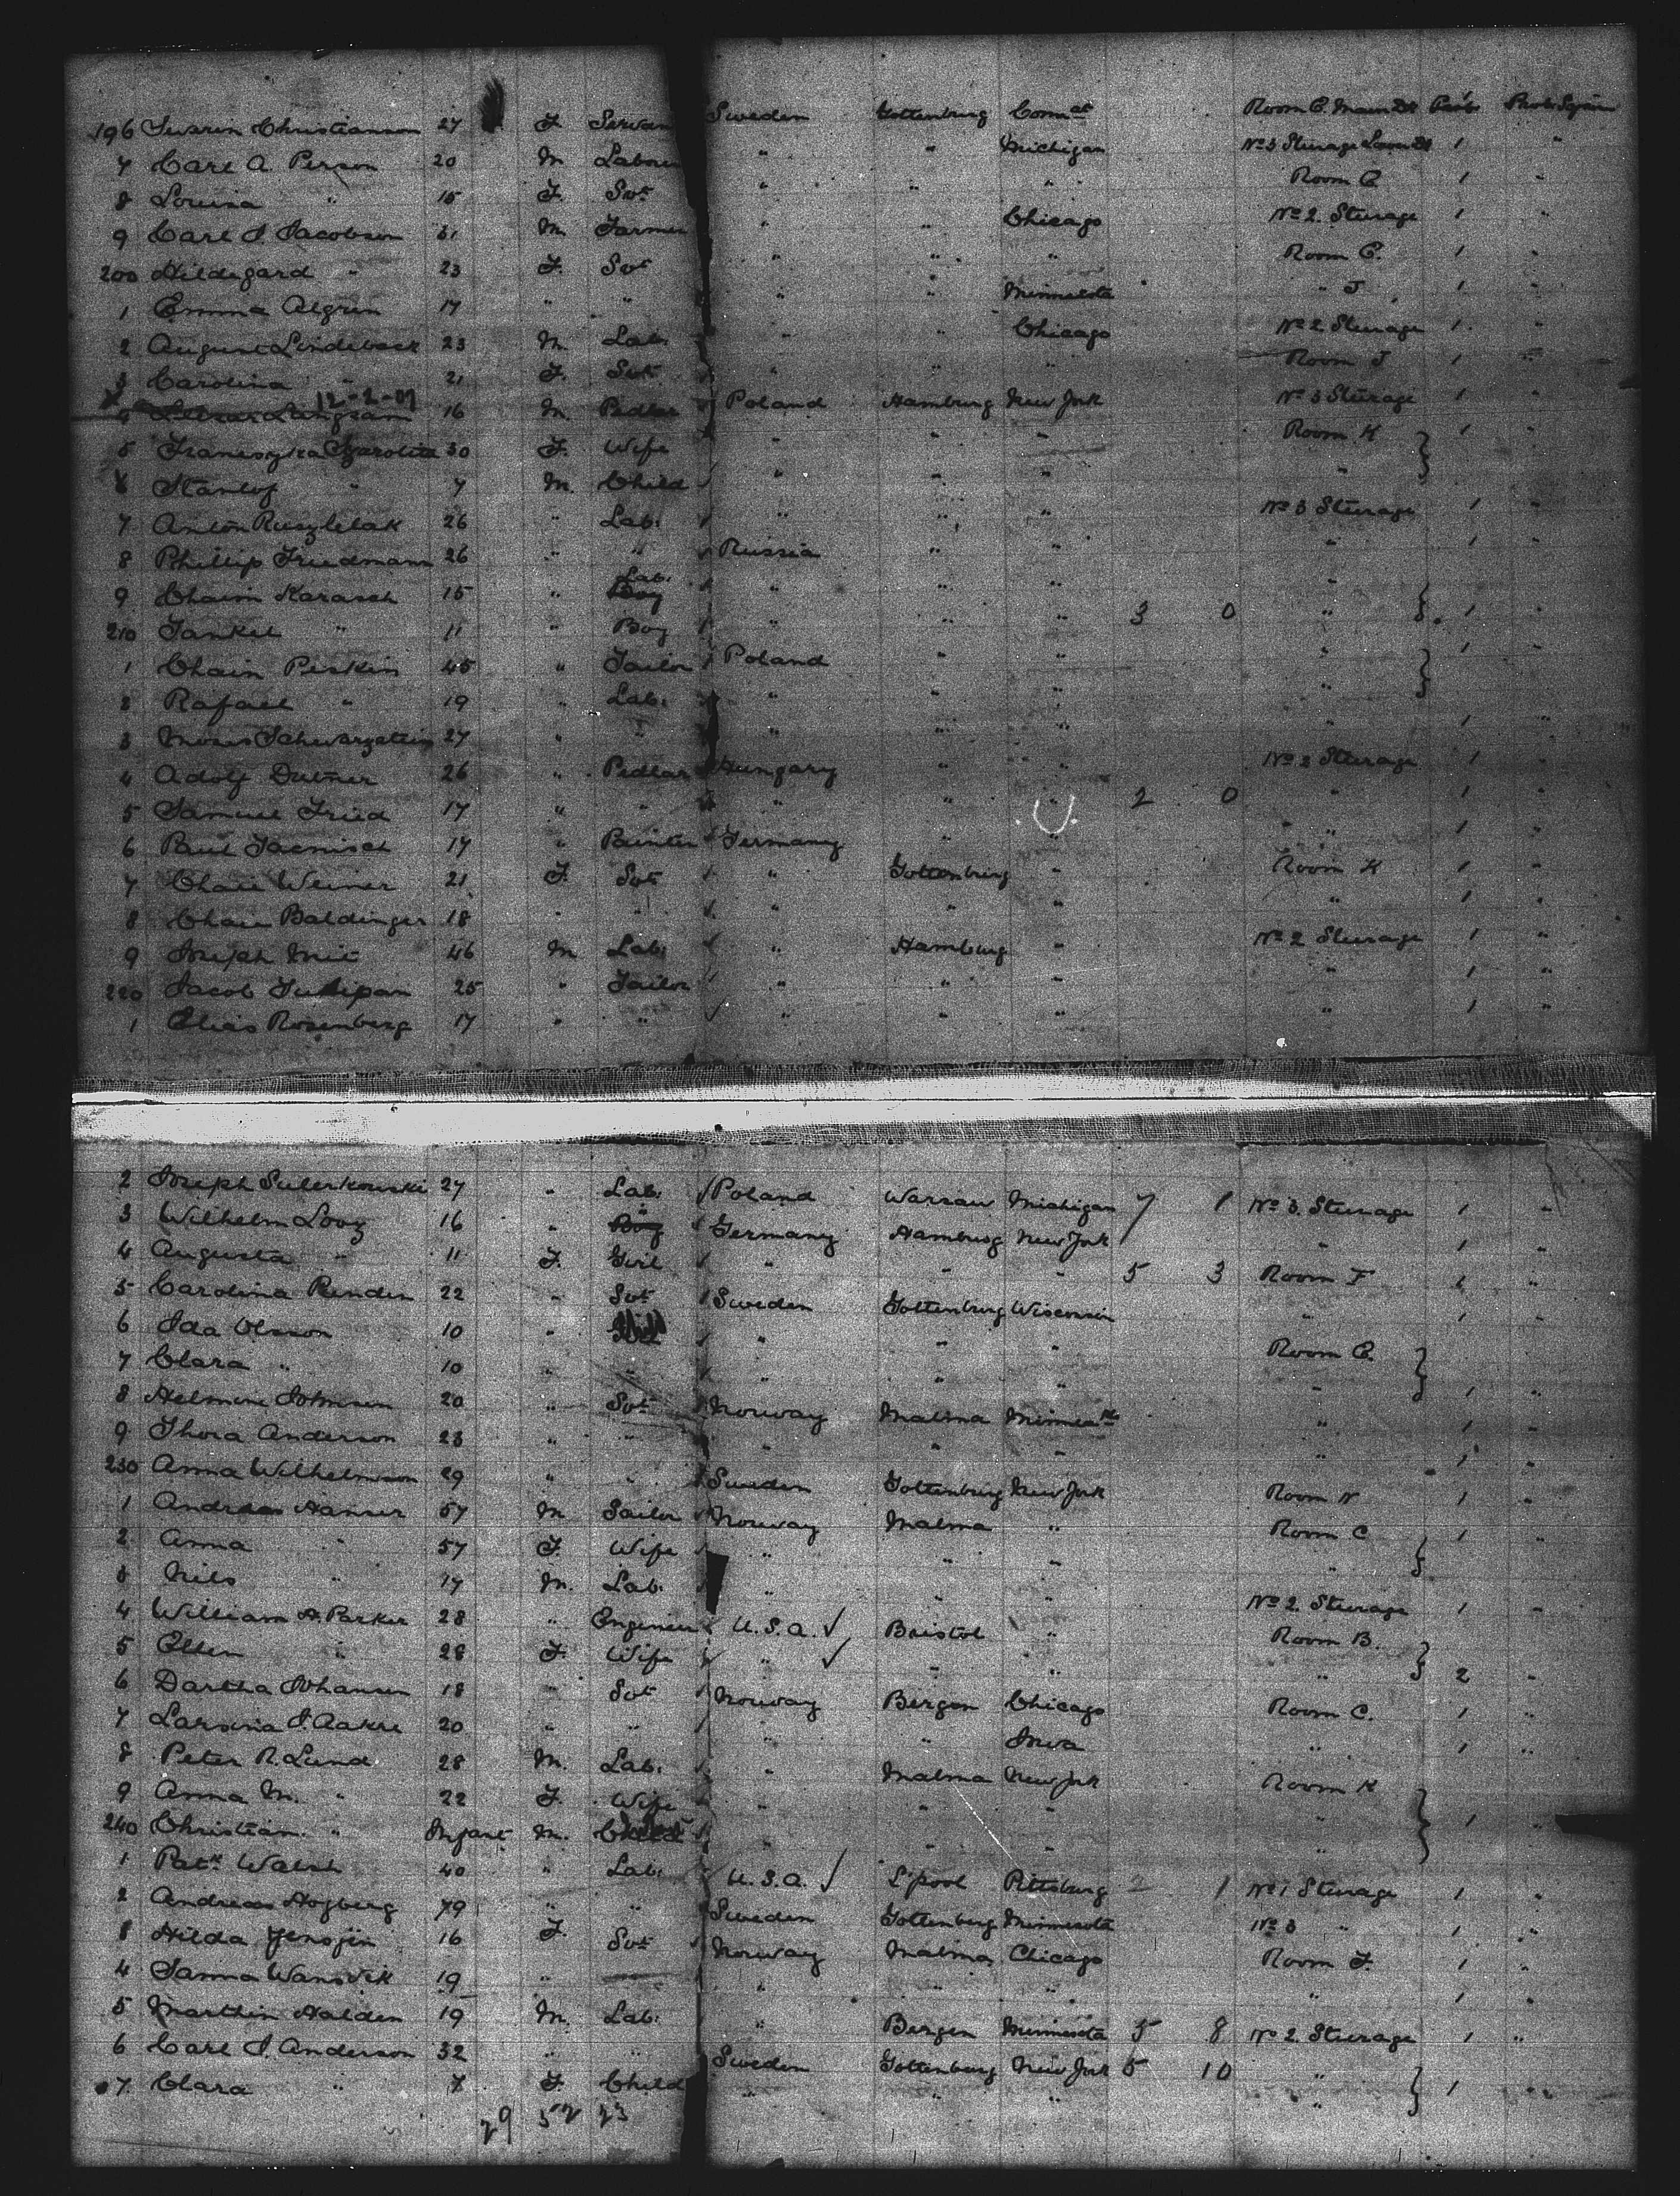 196 Severin Christianson 27 F Servan Sweden Gottenburg Connct Room C. Main Dk Prob
7 Carl A. Person 20 M Laborer " " Michigan No 3 Steerage Lower Dk 1 "
8 Lovisa " 15 F. Svt " " " Room C 1 "
9 Carl J. Jacobson 31 M Farmer " " Chicago No 2. Steerage 1 "
200 Hildegard " 23 F. Svt " " " Room C. 1 "
1 Emma Algren 17 " " " " Minnesota " J 1 "
2 August Lindeback 23 M Lab. " " Chicago No 2 Steerage 1 "
3 Carolina " 21 F. Svt " " " Room J 1 "
12-2-07
4 Langsam 16 M Pedlar Poland Hamburg New York No 3 Steerage 1 "
5 30 F. Wife " " " Room K 1 "
6 " 7 M. Child " " " "
7 Anton 26 " Lab. " " " No 3 Steerage 1 "
8 Phillip Friedmann 26 " " Russia " " " 1 "
9 Chaim Karasch 15 " Lab. Boy " " " "
210 Jankel " 11 " Boy " " " 3 0 " 1 "
1 Chain Peskin 45 " Tailor Poland " " " 1 "
2 Rafael " 19 " Lab. " " " "
3 Moses Schwarzstein 27 " " " " " 1 "
4 Adolf 26 " Pedlar Hungary " " No 2 Steerage 1 "
5 Samuel Fried 17 " " " " " 2 0 " 1 "
6 Paul Jaenisch 17 " Painter Germany " " " 1 "
7 Chaie Weiner 21 F. Svt " Gottenburg " Room K 1 "
8 Chaie Baldinger 18 " " " " " " 1 "
9 Joseph 46 M Lab. " Hamburg " No 2 Steerage 1 "
220 Jacob Tulipan 25 " Tailor " " " " 1 "
1 Elias Rosenberg 17 " " " " " " 1 "
2 Joseph 27 " Lab. Poland Warsaw Michigan 7 1 No 3. Steerage 1 "
3 Wilhelm Looz 16 " Boy Germany Hamburg New York " 1 "
4 Augusta " 11 F. Girl " " " 5 3 Room F 1 "
5 Carolina 22 " Svt Sweden Gottenburg Wisconsin " 1 "
6 Ida Olsson 10 " " " " Room C.
7 Clara " 10 " " " " " " 1 "
8 Helmine Johnsen 20 " Svt Norway Malma " 1 "
9 Thora Anderson 23 " " " " " " 1 "
230 Anna Wilhelmson 29 " " Sweden Gottenburg New York Room N 1 "
1 Andreas Hanser 57 M Sailor Norway Malma " Room C 1 "
2 Anna " 57 F. Wife " " " "
3 Nils " 17 M. Lab. " " " No 2. Steerage 1 "
4 William H. Parker 28 " Engineer U.S.A. Bristol " Room B.
5 Ellen " 28 F. Wife " " " " 2 "
6 Dartha Johansen 18 " Svt Norway Bergen Chicago Room C. 1 "
7 Larsina J. Aakre 20 " " " " Iowa " 1 "
8 Peter R. Lund 28 M. Lab. " Malma New York Room K
9 Anna M. " 22 F. Wife " " " " 1 "
240 Christian " Infant M. Child " " " "
1 Patk Walsh 40 " Lab. U.S.A. L'pool Pittsburg 2 1 No 1 Steerage 1 "
2 Andreas Hogberg 79 " " Sweden Gottenberg Minnesota No 3 " 1 "
3 Hilda 16 F. Svt Norway Malma Chicago Room F. 1 "
4 Sanna Wansvik 19 " " " " " 1 "
5 Marthin Halden 19 M. Lab. " Bergen Minnesota 5 8 No 2 Steerage 1 "
6 Carl J. Anderson 32 " " Sweden Gottenberg New York 5 10 "
7 Clara " 7 F. Child " " " " 1 "
29 52 23